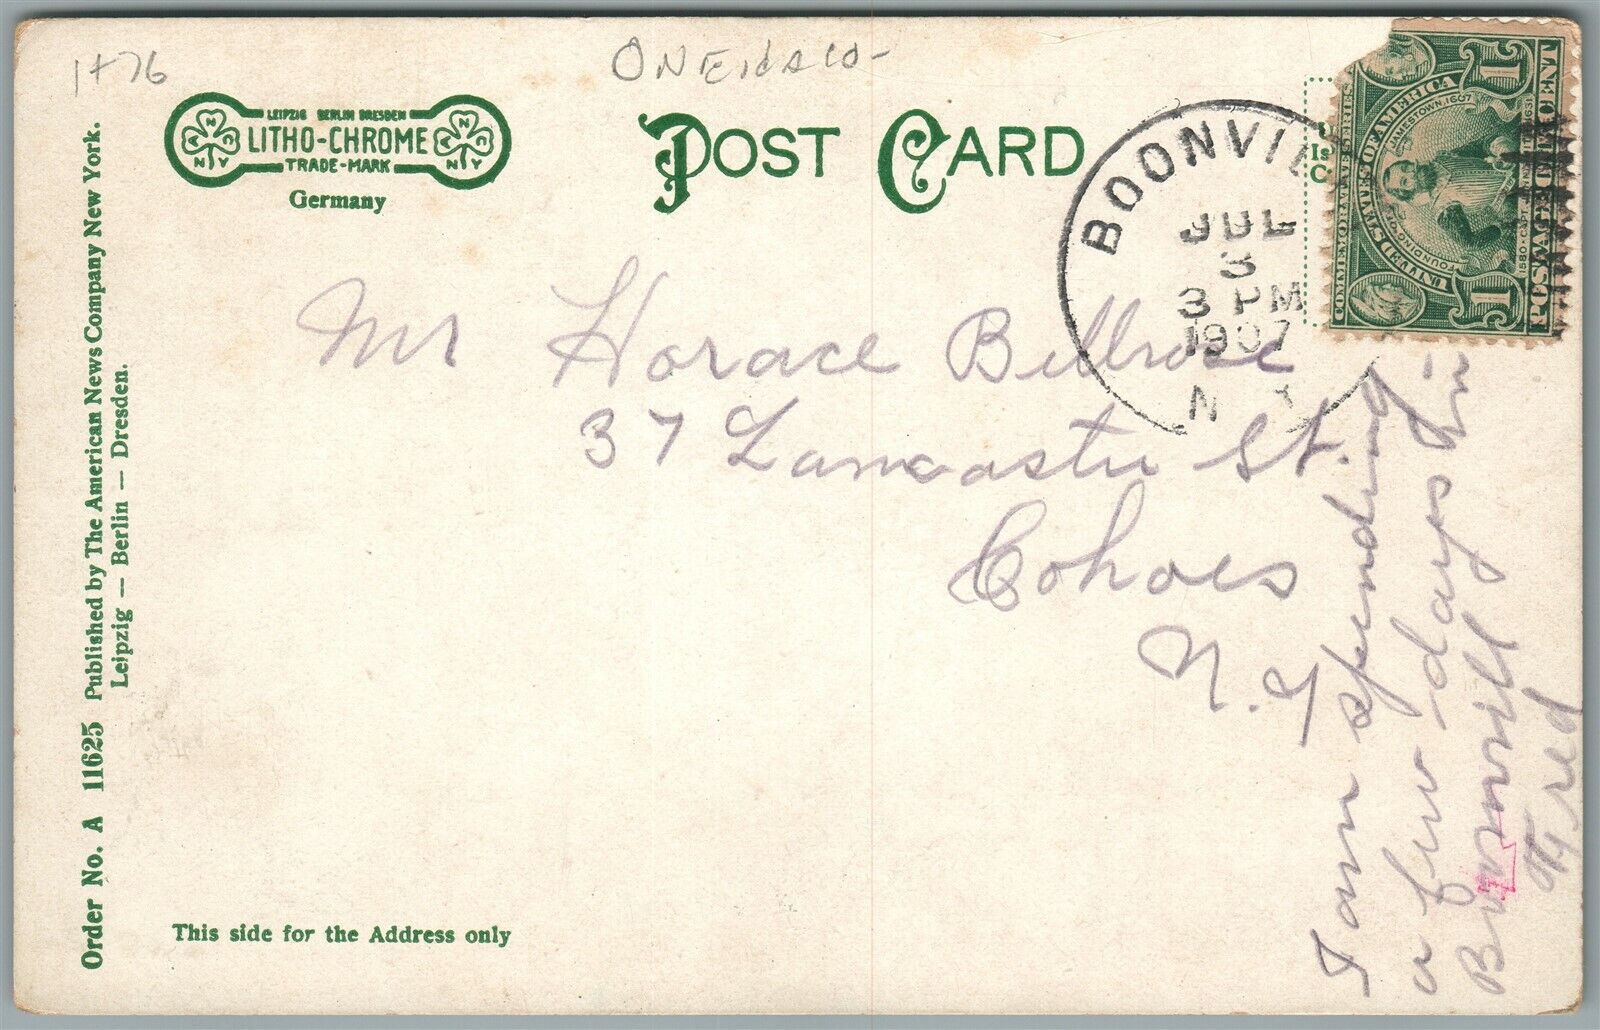 1+76
ONEIDA CO-
LEIPZIG BERLIN DRESDEN
LITHO-CHROME
TRADE-MARK
Germany
A N C
N Y
A N C
N Y
POST CARD
BOONVILL
JUL
3
3 PM
1907
N. Y
COMMEMORATIVE SERIES
UNITED STATES OF AMERICA
FOUNDING OF JAMESTOWN, 1607
1580-CAPT. JOHN SMITH-1631
POSTAGE ONE CENT
1 1
Mr Horace Bellrose
37 Lancaster St.
Cohoes
N. Y
I am spending
a few days in
Boonvill
Fred
Order No. A 11625 Published by The American News Company New York.
Leipzig — Berlin — Dresden.
This side for the Address only